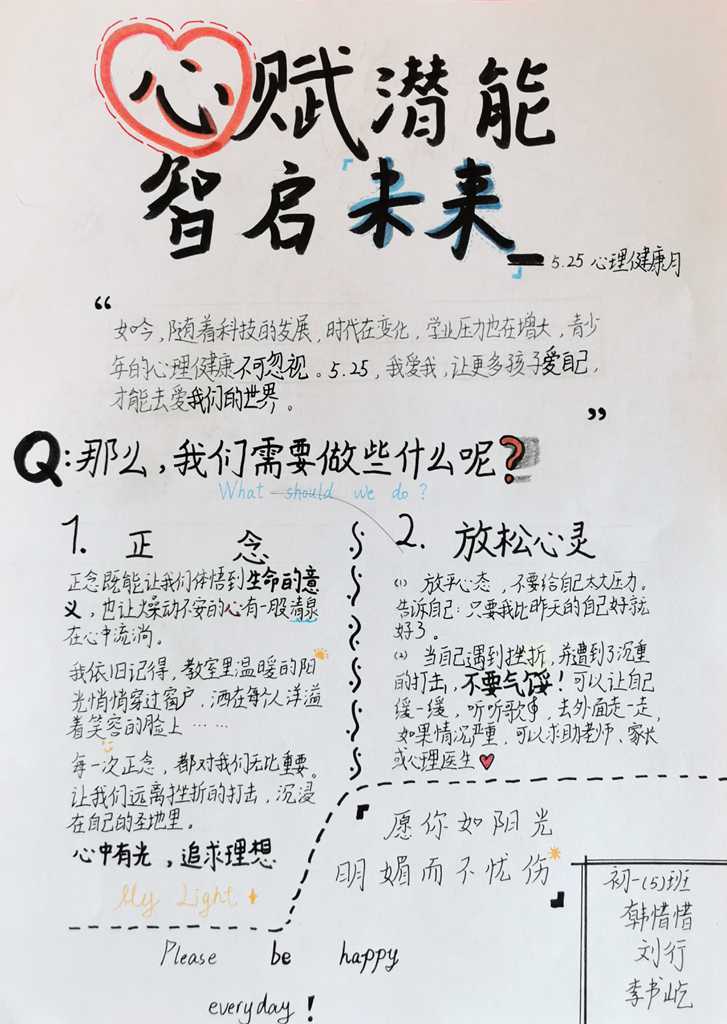 心赋潜能
智启「未来」
5.25 心理健康月
“
如今，随着科技的发展，时代在变化，学业压力也在增大，青少
年的心理健康不可忽视。5.25，我爱我，让更多孩子爱自己，
才能去爱我们的世界。
”
Q：那么，我们需要做些什么呢？
What should we do ?
1. 正 念
正念既能让我们体悟到生命的意
义，也让燥动不安的心有一股清泉
在心中流淌。
我依旧记得，教室里温暖的阳
光悄悄穿过窗户，洒在每个人洋溢
着笑容的脸上……
每一次正念，都对我们无比重要。
让我们远离挫折的打击，沉浸
在自己的圣地里。
心中有光，追求理想
My Light
2. 放松心灵
(1) 放平心态，不要给自己太大压力。
告诉自己：只要我比昨天的自己好就
好了。
(2) 当自己遇到挫折，并遭到了沉重
的打击，不要气馁！可以让自己
缓一缓，听听歌，去外面走一走，
如果情况严重，可以求助老师、家长
或心理医生
「愿你如阳光
明媚而不忧伤」
Please be happy
everyday !
初一(5)班
韩惜惜
刘行
李书屹